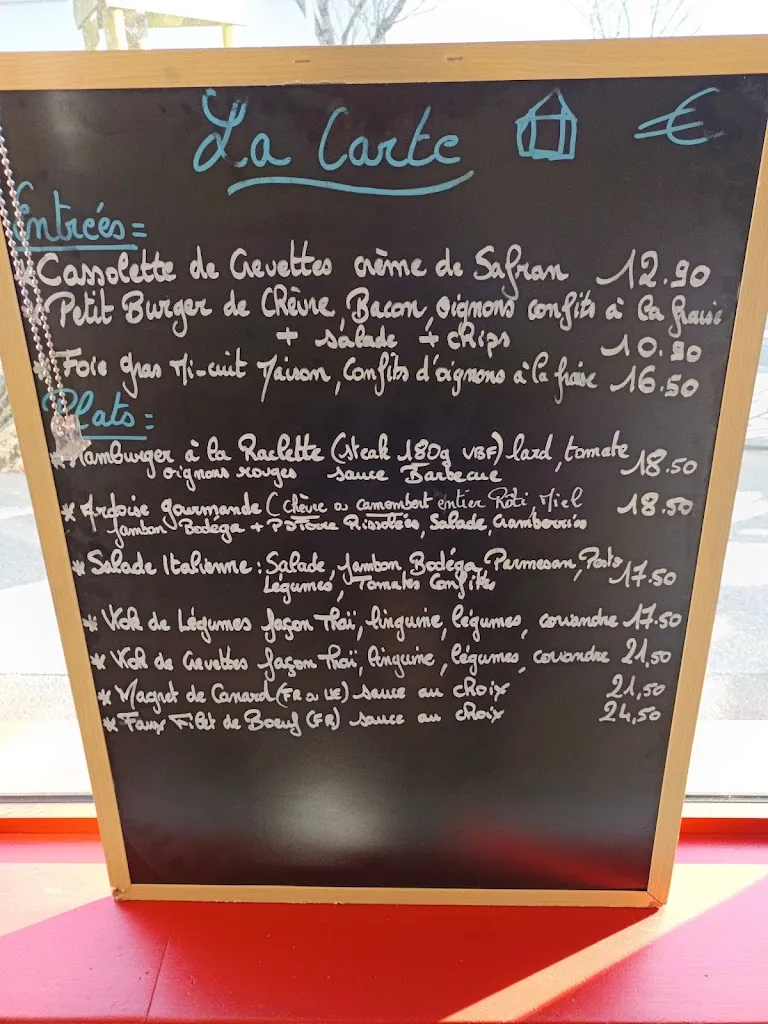 La Carte €
Entrées =
* Cassolette de Crevettes crème de Safran 12.90
* Petit Burger de Chèvre, Bacon, oignons confits à la fraise
+ salade + chips 10.90
* Foie gras Mi-cuit Maison, Confits d'oignons à la fraise 16.50
Plats :
* Hamburger à la Raclette (steak 180g VBF) lard, tomate
oignons rouges sauce Barbecue 18.50
* Ardoise gourmande (chèvre ou camembert entier Roti, Miel 18.50
Jambon Bodéga + P.DTerre Rissolées, Salade, Cramberries
* Salade Italienne : Salade, Jambon, Bodéga, Parmesan, Pesto
Légumes, Tomates Confites 17.50
* Wok de Légumes façon Thaï, linguine, légumes, coriandre 17.50
* Wok de Crevettes façon Thaï, linguine, légumes, coriandre 21,50
* Magret de Canard (FR ou UE) sauce au choix 21,50
* Faux Filet de Boeuf (FR) sauce au choix 24,50